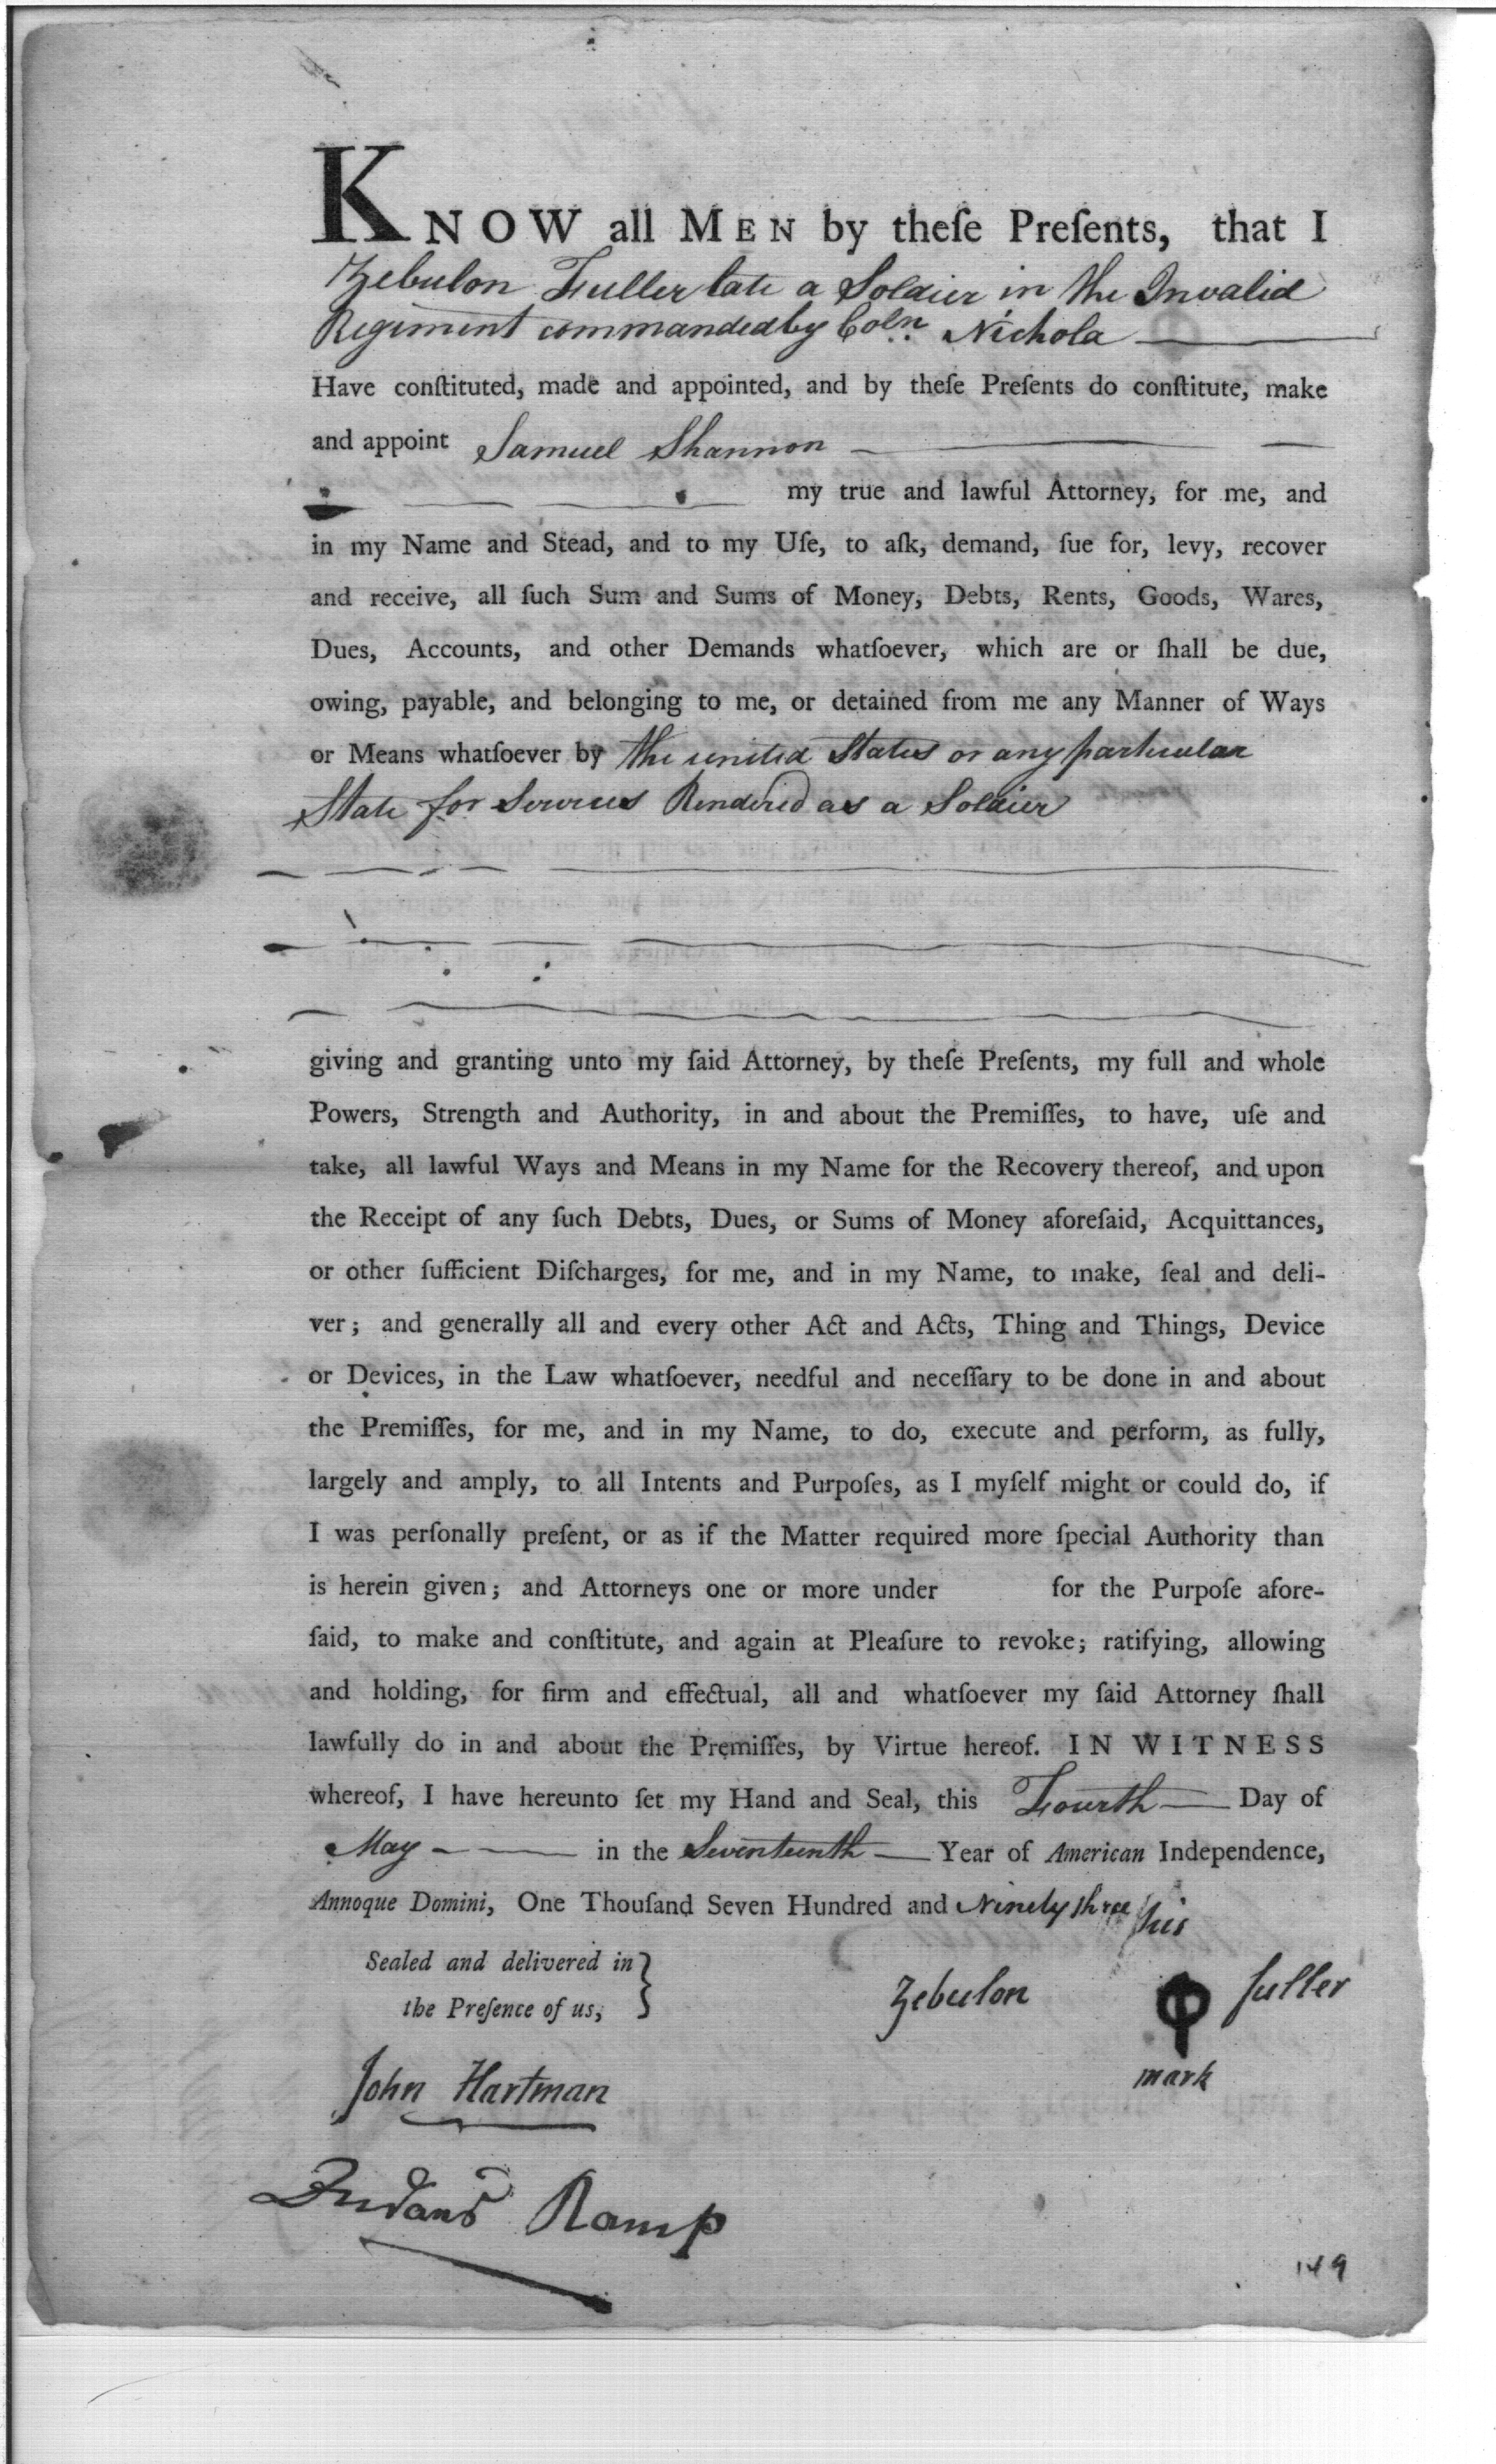 KNOW all MEN by theſe Preſents, that I
Zebulon Fuller late a Soldier in the Invalid
Regiment commanded by Coln. Nichola
Have conſtituted, made and appointed, and by theſe Preſents do conſtitute, make
and appoint Samuel Shannon
my true and lawful Attorney, for me, and
in my Name and Stead, and to my Uſe, to aſk, demand, ſue for, levy, recover
and receive, all ſuch Sum and Sums of Money, Debts, Rents, Goods, Wares,
Dues, Accounts, and other Demands whatſoever, which are or ſhall be due,
owing, payable, and belonging to me, or detained from me any Manner of Ways
or Means whatſoever by the united States or any particular
State for Services Rendered as a Soldier
giving and granting unto my ſaid Attorney, by theſe Preſents, my full and whole
Powers, Strength and Authority, in and about the Premiſſes, to have, uſe and
take, all lawful Ways and Means in my Name for the Recovery thereof, and upon
the Receipt of any ſuch Debts, Dues, or Sums of Money aforeſaid, Acquittances,
or other ſufficient Diſcharges, for me, and in my Name, to make, ſeal and deli-
ver; and generally all and every other Act and Acts, Thing and Things, Device
or Devices, in the Law whatſoever, needful and neceſſary to be done in and about
the Premiſſes, for me, and in my Name, to do, execute and perform, as fully,
largely and amply, to all Intents and Purpoſes, as I myſelf might or could do, if
I was perſonally preſent, or as if the Matter required more ſpecial Authority than
is herein given; and Attorneys one or more under for the Purpoſe afore-
ſaid, to make and conſtitute, and again at Pleaſure to revoke; ratifying, allowing
and holding, for firm and effectual, all and whatſoever my ſaid Attorney ſhall
lawfully do in and about the Premiſſes, by Virtue hereof. IN WITNESS
whereof, I have hereunto ſet my Hand and Seal, this Fourth Day of
May in the Seventeenth Year of American Independence,
Annoque Domini, One Thouſand Seven Hundred and Ninety three
his
Sealed and delivered in
the Preſence of us,
Zebulon fuller
mark
John Hartman
Ramp
149